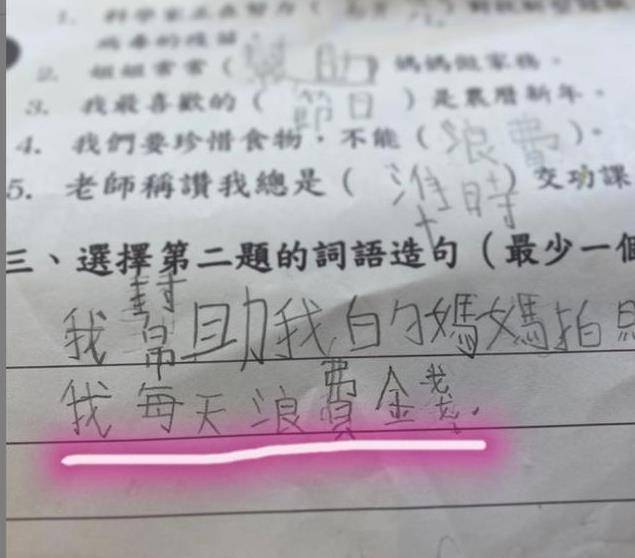 1. 科學家正在努力（
病毒的殘留。
2. 姐姐常常（幫助）媽媽做家務。
3. 我最喜歡的（節日）是農曆新年。
4. 我們要珍惜食物，不能（浪費）。
5. 老師稱讚我總是（準時）交功課
三、選擇第二題的詞語造句（最少一個
我幫助我的媽媽拍照
我每天浪費金錢。